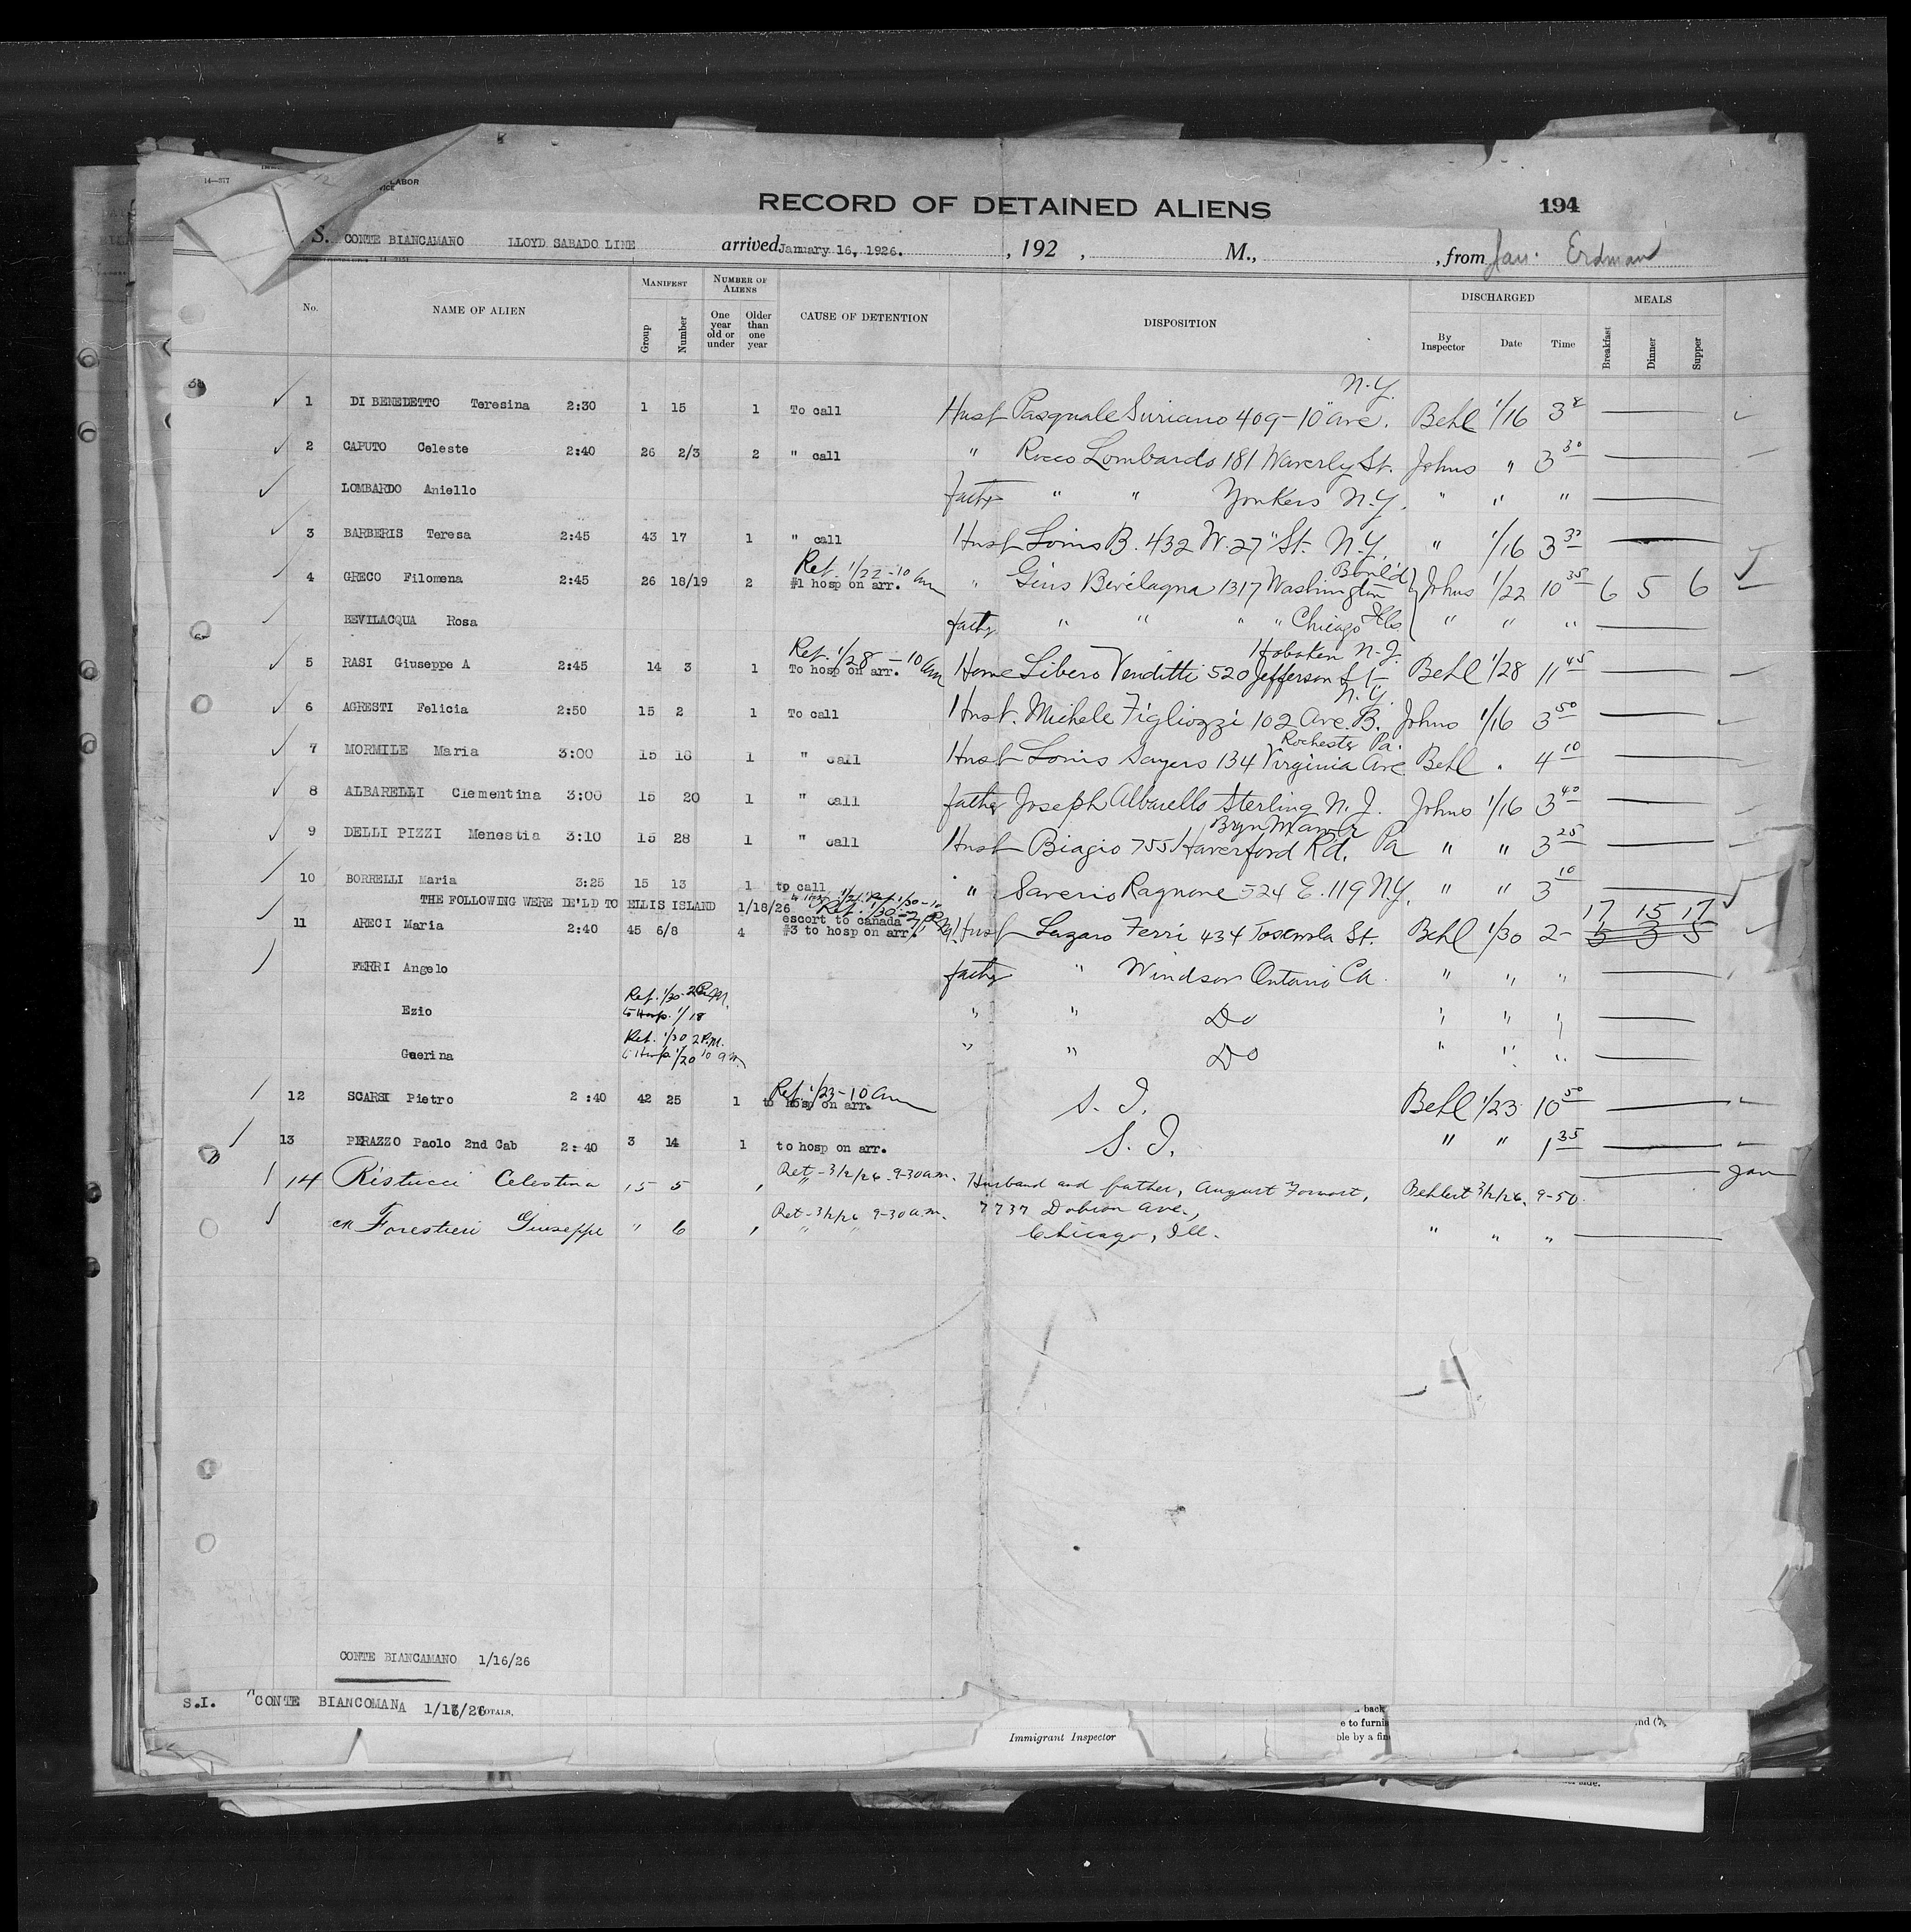 14—577
LABOR
VICE
RECORD OF DETAINED ALIENS
194
S. CONTE BIANCAMANO LLOYD SABADO LINE arrived January 16, 1926. , 192 , M., , from Jan. Erdman
No. NAME OF ALIEN MANIFEST Group Number NUMBER OF ALIENS One year old or under Older than one year CAUSE OF DETENTION DISPOSITION DISCHARGED By Inspector Date Time MEALS Breakfast Dinner Supper
N.Y.
1 DI BENEDETTO Teresina 2:30 1 15 1 To call Husb Pasquale Suriano 409-10" Ave. Behl 1/16 3
2 CAPUTO Celeste 2:40 26 2/3 2 " call " Rocco Lombardo 181 Waverly St. Johns " 3 30
LOMBARDO Aniello father " " Yonkers N.Y. " " "
3 BARBERIS Teresa 2:45 43 17 1 " call Husb Louis B. 432 W. 27" St. N.Y. " 1/16 3 30
Ret. 1/22-10 am Boul'd
4 GRECO Filomena 2:45 26 18/19 2 #1 hosp on arr. " 1317 Washington Johns 1/22 10 35 6 5 6
BEVILACQUA Rosa father " " " " Chicago Ills " " "
Ret. 1/28-10 am Hoboken N.J.
5 RASI Giuseppe A 2:45 14 3 1 To hosp on arr. Home Libero Venditti 520 Jefferson St Behl 1/28 11 45
N.Y.
6 AGRESTI Felicia 2:50 15 2 1 To call Husb. Michele Figliozzi 102 Ave. B. Johns 1/16 3 50
Rochester Pa.
7 MORMILE Maria 3:00 15 16 1 " call Husb Louis Sayers 134 Virginia Ave Behl " 4 10
8 ALBARELLI Clementina 3:00 15 20 1 " call father Joseph Albarello Sterling N.J. Johns 1/16 3 40
Bryn Mawr
9 DELLI PIZZI Menestia 3:10 15 28 1 " call Husb Biagio 755 Haverford Rd. Pa " " 3 25
10 BORRELLI Maria 3:25 15 13 1 to call " Saverio Ragnone 524 E. 119 N.Y. " " 3 10
THE FOLLOWING WERE DE'LD TO ELLIS ISLAND 1/18/26 escort to canada 17 15 17
11 ARECI Maria 2:40 45 6/8 4 #3 to hosp on arr. Husb Lazaro Ferri 434 St. Behl 1/30 2- 5 3 5
FERRI Angelo father " Windsor Ontario Ca. " " "
Ret. 1/30-2 P.M.
Ezio to Hosp. 1/18 " " Do " " "
Ret. 1/30 2 P.M.
Guerina to Hosp 1/20 10 am " " Do " " "
Ret. 1/23-10 am
12 SCARSI Pietro 2:40 42 25 1 to hosp on arr. S. I. Behl 1/23 10 50
13 PERAZZO Paolo 2nd Cab 2:40 3 14 1 to hosp on arr. S. I. " " 1 35
14 Ristucci Celestina 15 5 Ret-3/2/26-9-30 a.m. Husband and father, August Behlert 3/2/26. 9-50. Jan
ch Forestieri Giuseppe " 6 Ret-3/2/26 9-30 a.m. 7737 Dobson Ave.,
Chicago, Ill. " " "
CONTE BIANCAMANO 1/16/26
S.I. "CONTE BIANCOMANA 1/16/26 TOTALS.
Immigrant Inspector
back
e to furnis
ble by a fine
nd (7,
side.